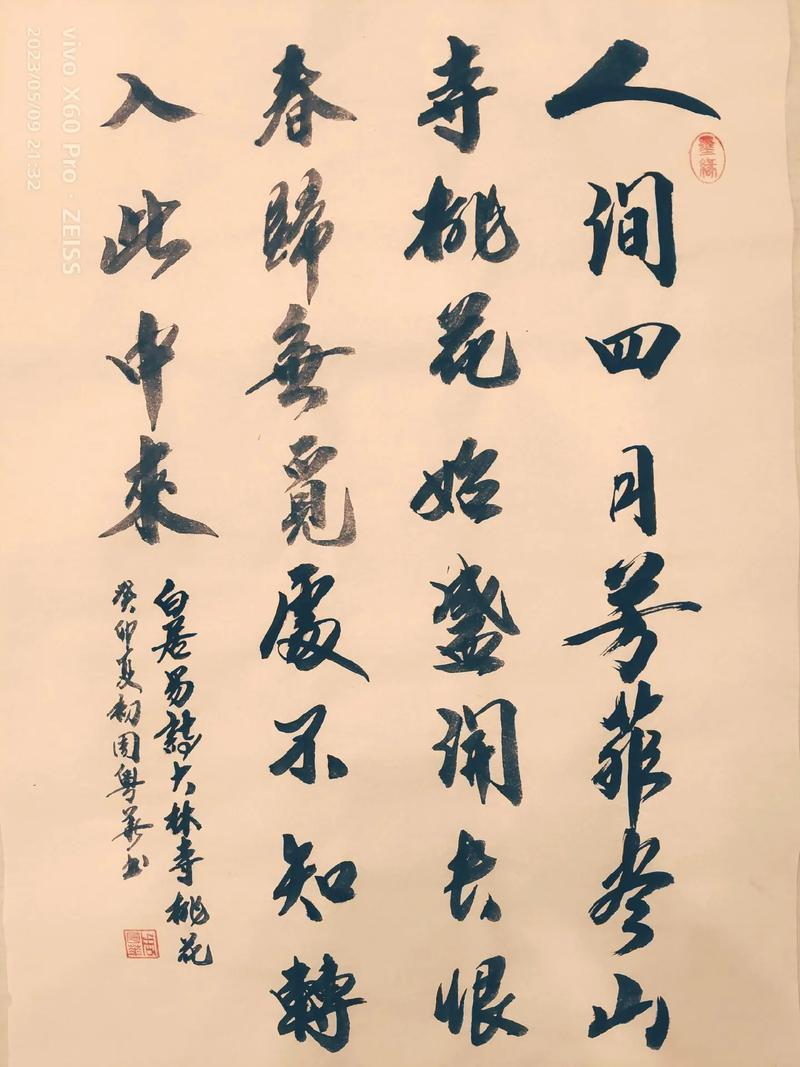 人間四月芳菲尽山
寺桃花始盛開長恨
春歸無覓處不知轉
入此中來
白居易詩大林寺桃花
癸卯夏初周粤華书
墨緣
vivo X60 Pro · ZEISS
2023/05/09 21:32